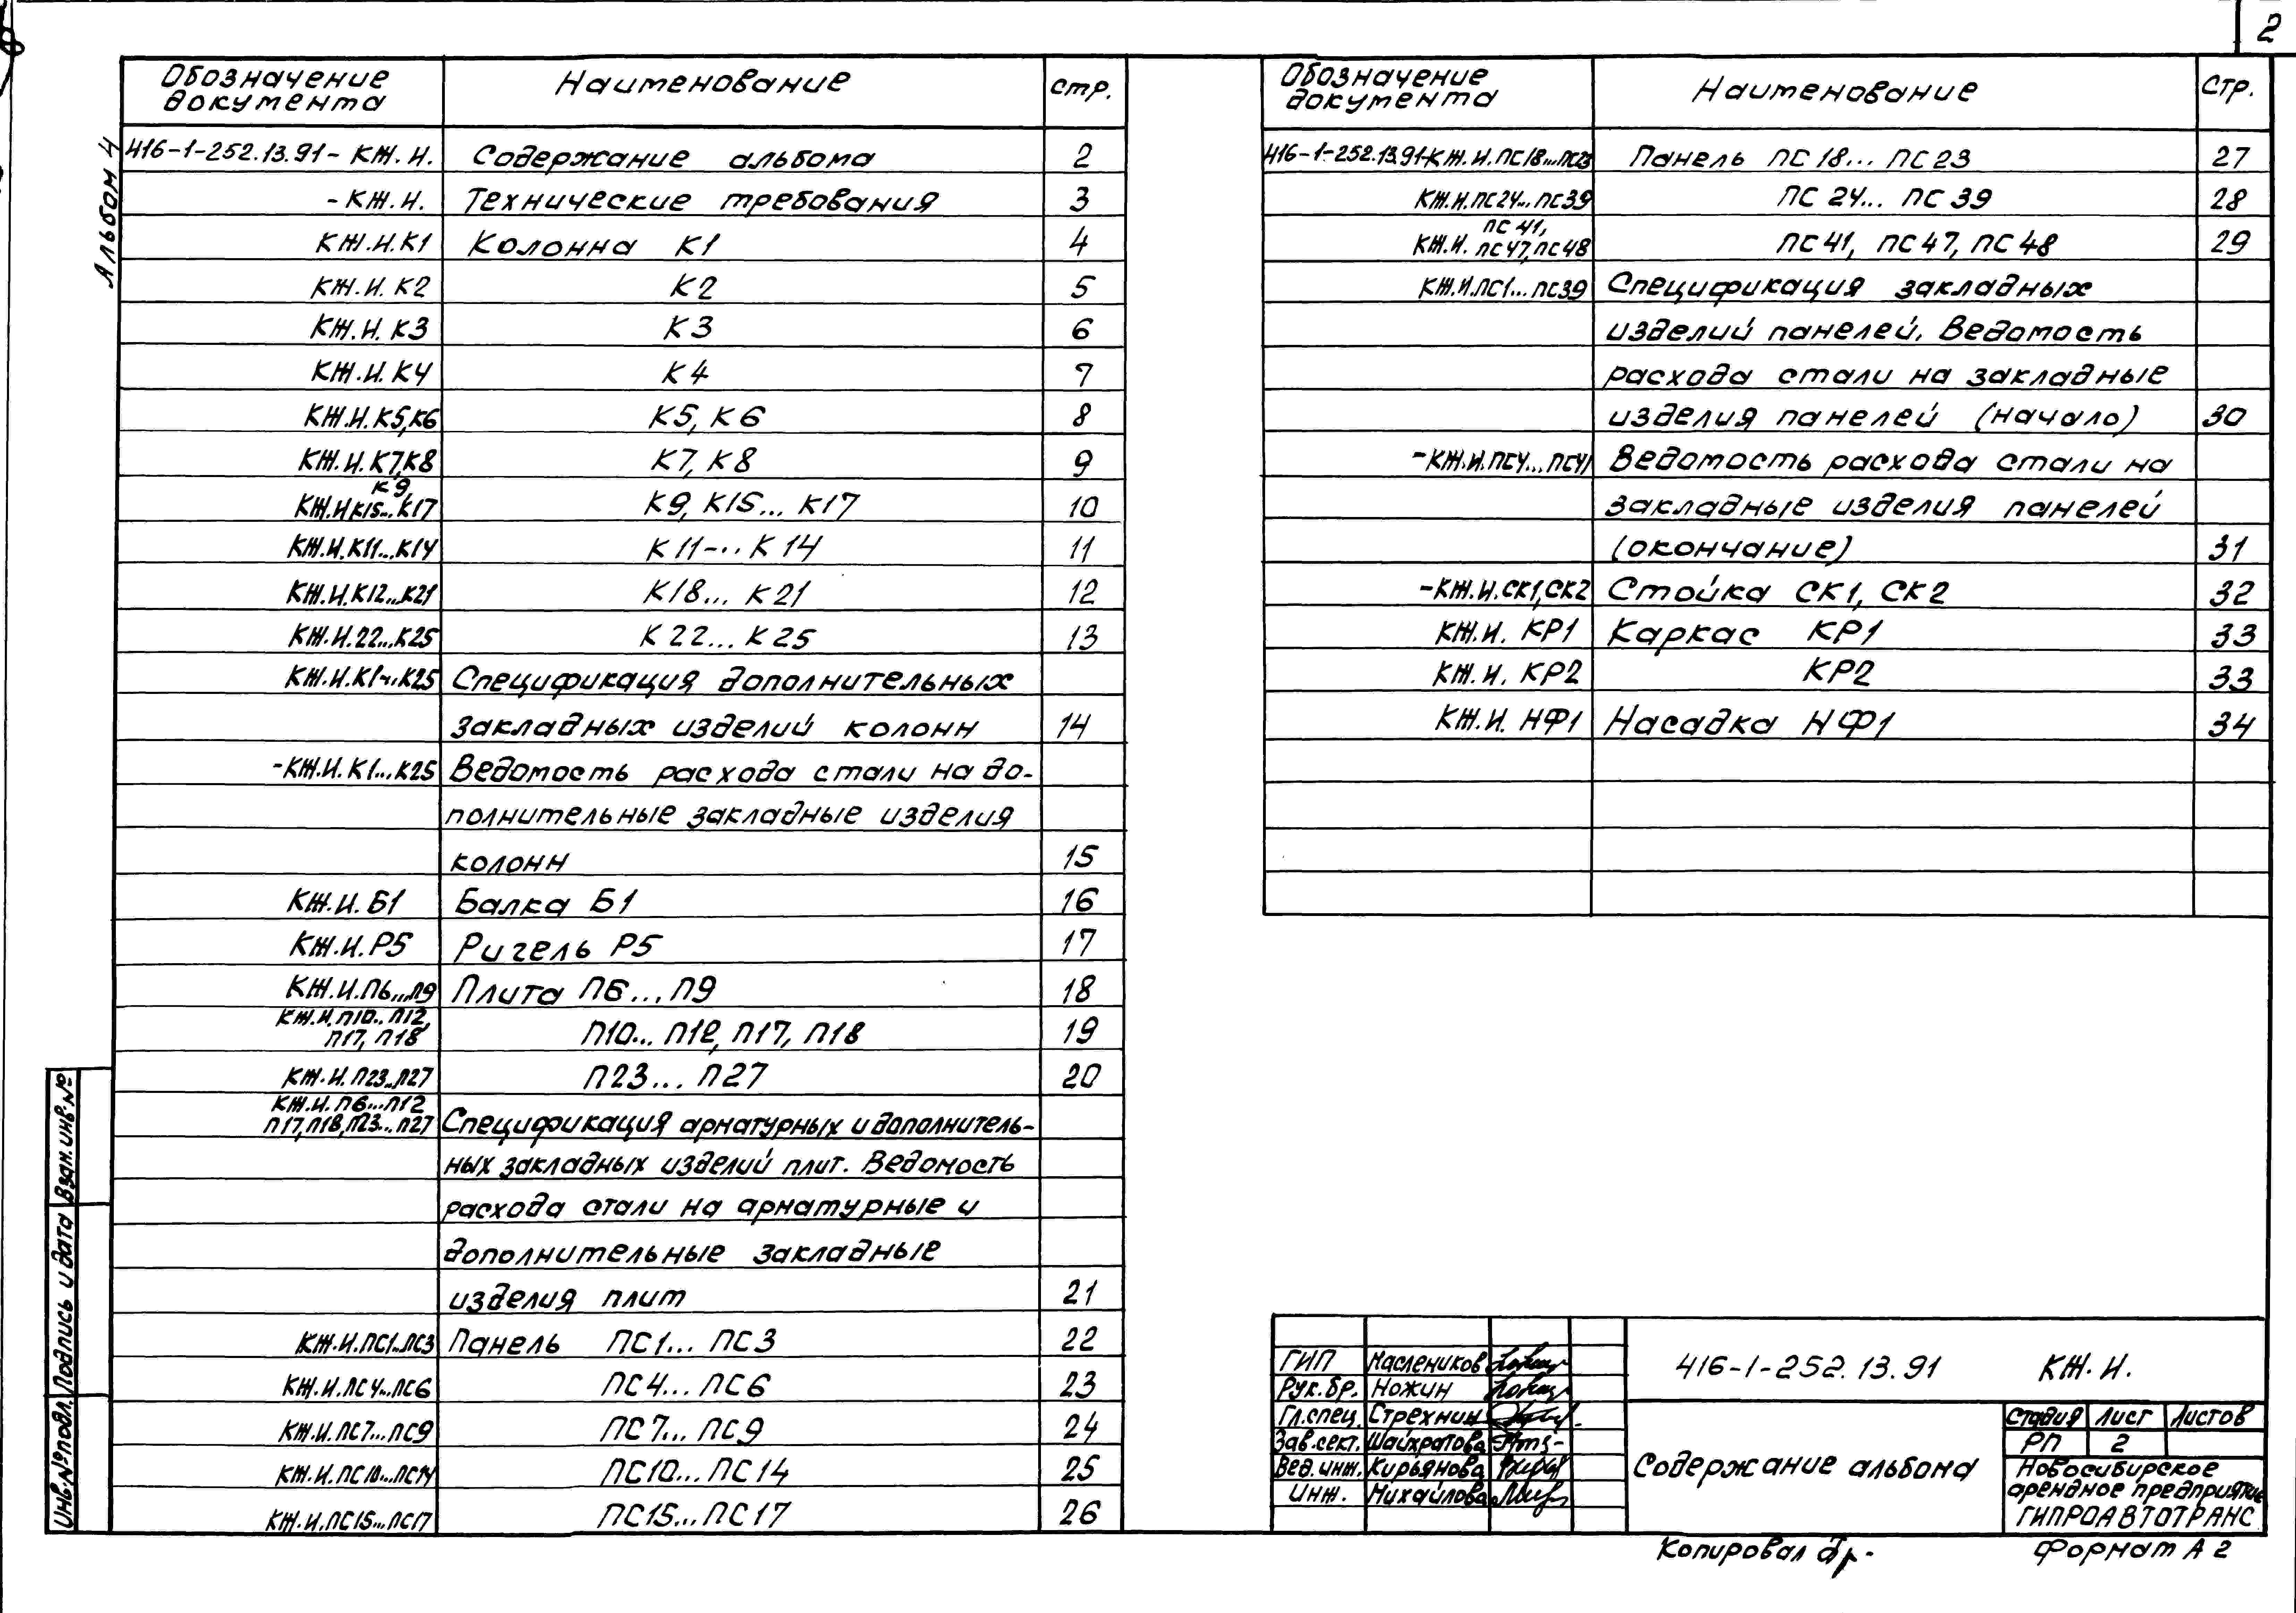 2
Альбом 4
Обозначение документа Наименование стр.
416-1-252.13.91- КЖ.И. Содержание альбома 2
-КЖ.И. Технические требования 3
КЖ.И.К1 Колонна К1 4
КЖ.И.К2 К2 5
КЖ.И.К3 К3 6
КЖ.И.К4 К4 7
КЖ.И.К5,К6 К5, К6 8
КЖ.И.К7,К8 К7, К8 9
К9,
КЖ.И К15...К17 К9, К15... К17 10
КЖ.И.К11...К14 К11-.. К14 11
КЖ.И.К12...К21 К18... К21 12
КЖ.И.22...К25 К22... К25 13
КЖ.И.К1...К25 Спецификация дополнительных
закладных изделий колонн 14
-КЖ.И.К1...К25 Ведомость расхода стали на до-
полнительные закладные изделия
колонн 15
КЖ.И.Б1 Балка Б1 16
КЖ.И.Р5 Ригель Р5 17
КЖ.И.П6...П9 Плита П6...П9 18
КЖ.И.П10...П12,
П17, П18 П10... П12, П17, П18 19
КЖ.И.П23...П27 П23... П27 20
КЖ.И.П6...П12
П17,П18,П23...П27 Спецификация арматурных и дополнитель-
ных закладных изделий плит. Ведомость
расхода стали на арматурные и
дополнительные закладные
изделия плит 21
КЖ.И.ПС1...ПС3 Панель ПС1... ПС3 22
КЖ.И.ПС4...ПС6 ПС4... ПС6 23
КЖ.И.ПС7...ПС9 ПС7... ПС9 24
КЖ.И.ПС10...ПС14 ПС10... ПС14 25
КЖ.И.ПС15...ПС17 ПС15... ПС17 26
Обозначение документа Наименование Стр.
416-1-252.13.91-КЖ.И.ПС18...ПС23 Панель ПС18... ПС23 27
КЖ.И.ПС24...ПС39 ПС24... ПС39 28
ПС41,
КЖ.И. ПС47,ПС48 ПС41, ПС47, ПС48 29
КЖ.И.ПС1...ПС39 Спецификация закладных
изделий панелей. Ведомость
расхода стали на закладные
изделия панелей (начало) 30
-КЖ.И.ПС4...ПС41 Ведомость расхода стали на
закладные изделия панелей
(окончание) 31
-КЖ.И.СК1,СК2 Стойка СК1, СК2 32
КЖ.И. КР1 Каркас КР1 33
КЖ.И. КР2 КР2 33
КЖ.И. НФ1 Насадка НФ1 34
Взам.инв.№
Подпись и дата
Инв.№подл.
ГИП Маслеников
Рук.бр. Ножин
Гл.спец. Стрехнин
Зав.сект. Шайхратова
Вед.инж. Кирьянова
Инж. Михайлова
416-1-252.13.91 КЖ.И.
Содержание альбома
Стадия Лист Листов
РП 2
Новосибирское
арендное предприятие
ГИПРОАВТОТРАНС
Копировал
Формат А2